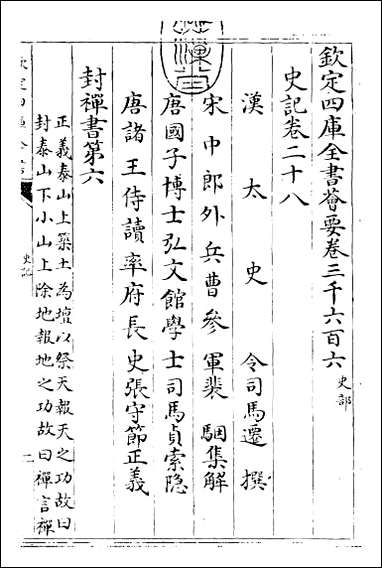 欽定四庫全書薈要卷三千六百六
史部
史記卷二十八
漢太史令司馬遷撰
宋中郎外兵曹參軍裴駰集解
唐國子博士弘文館學士司馬貞索隐
唐諸王侍讀率府長史張守節正義
封禪書第六
正義泰山上築土為壇以祭天報天之功故曰
封泰山下小山上除地報地之功故曰禪言禪
史記